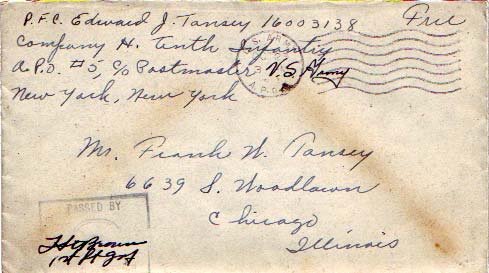 P.F.C. Edward J. Tansey 16003138
Free
Company H. Tenth Infantry
A.P.O. #5, c/o Postmaster U.S. Army
New York, New York
A.P.O.
Mr. Frank W. Tansey
6639 S. Woodlawn
Chicago
Illinois
PASSED BY